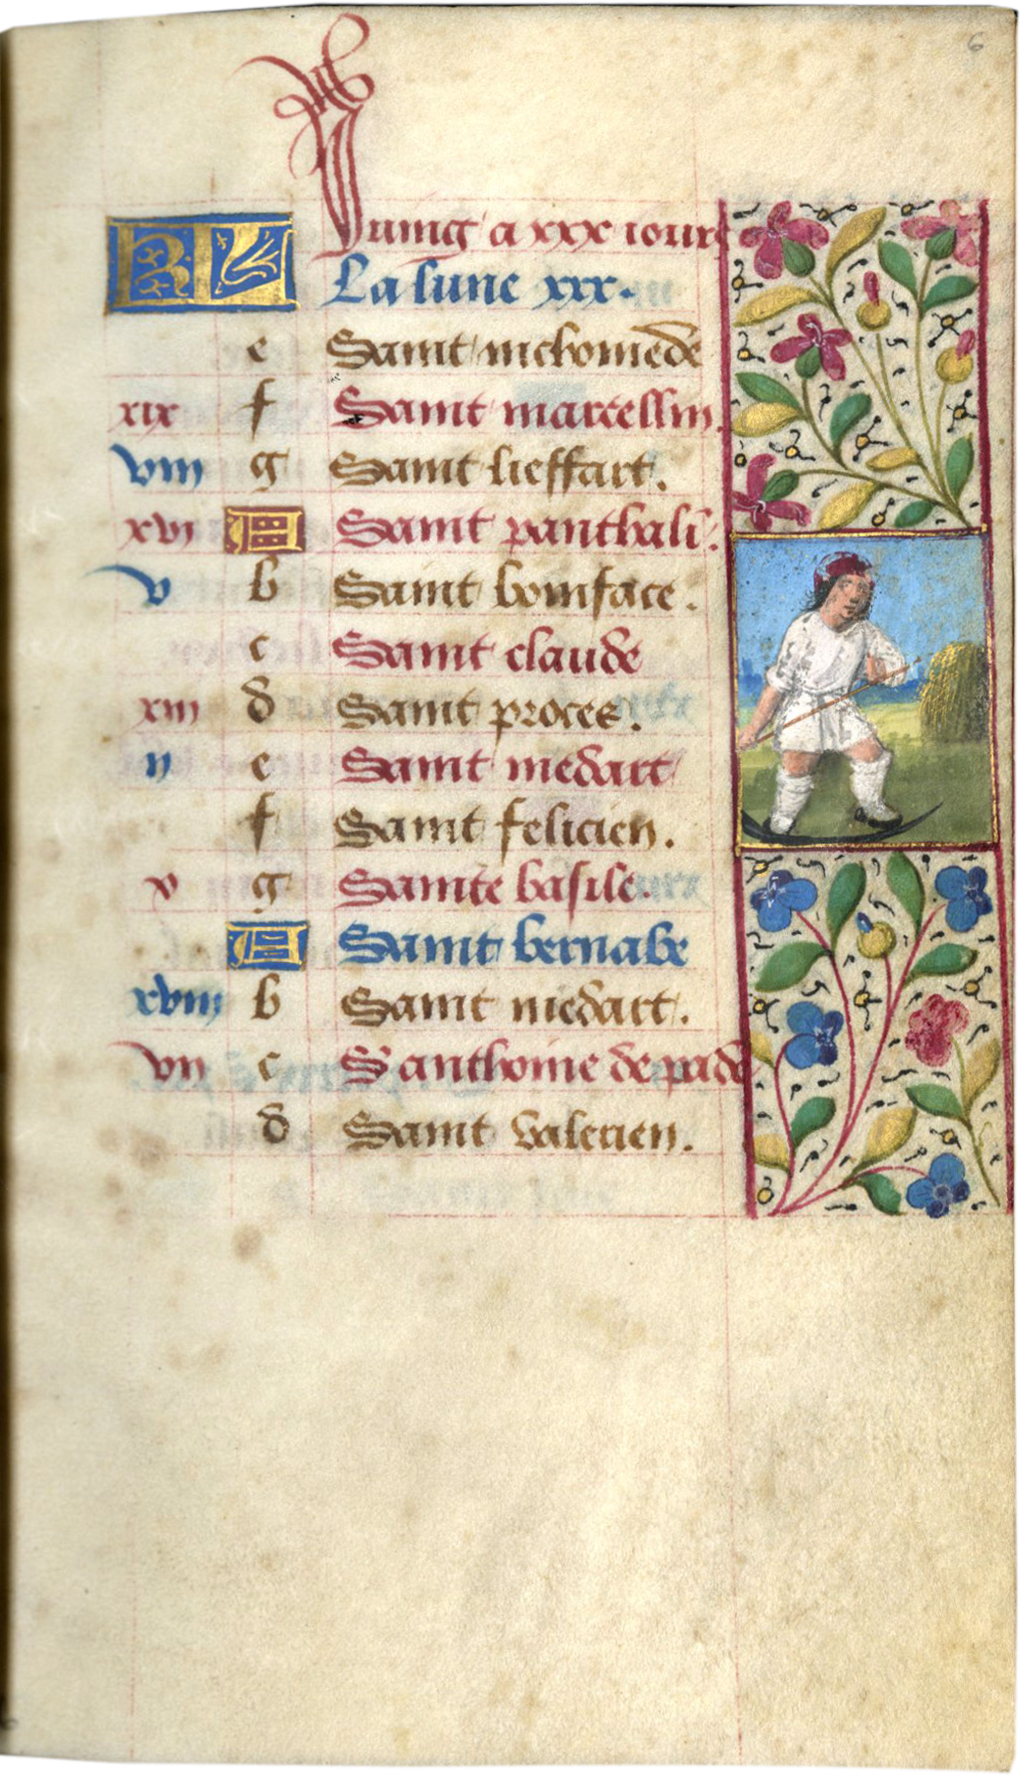 6
KL Juing a xxx iours
La lune xxx.
e Saint nichomede
xix f Saint marcellin.
viii g Saint lieffart.
xvi A Saint panthali.
v b Saint boniface.
c Saint claude
xiii d Saint proces.
ii e Saint medart
f Saint felicien.
x g Sainte basile.
A Saint bernabe
xviii b Saint medart.
vii c S anthoine de pade
d Saint valerien.